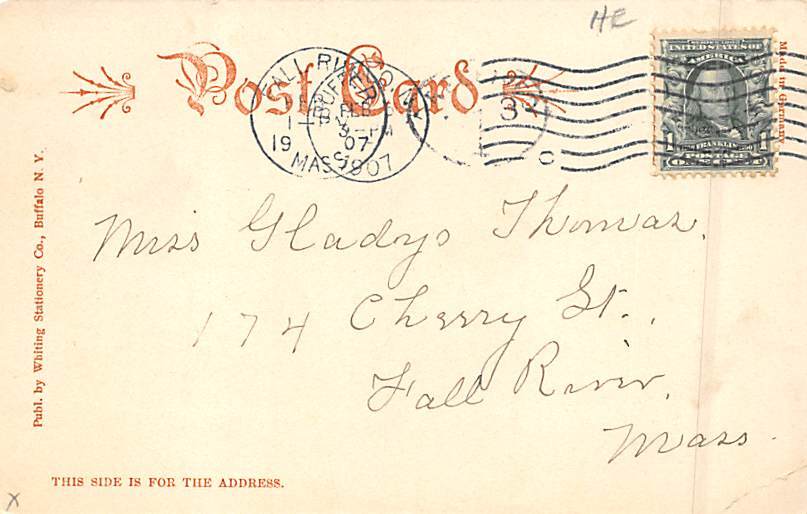 HE
Post Card
FALL RIVER
MASS.
19 07
BUFFALO N.Y.
FEB
PM
1907
3
C
UNITED STATES OF
AMERICA
1 FRANKLIN 1
POSTAGE
Made in Germany
Miss Gladys Thomas,
174 Cherry St.,
Fall River,
Mass.
Publ. by Whiting Stationery Co., Buffalo N. Y.
THIS SIDE IS FOR THE ADDRESS.
X